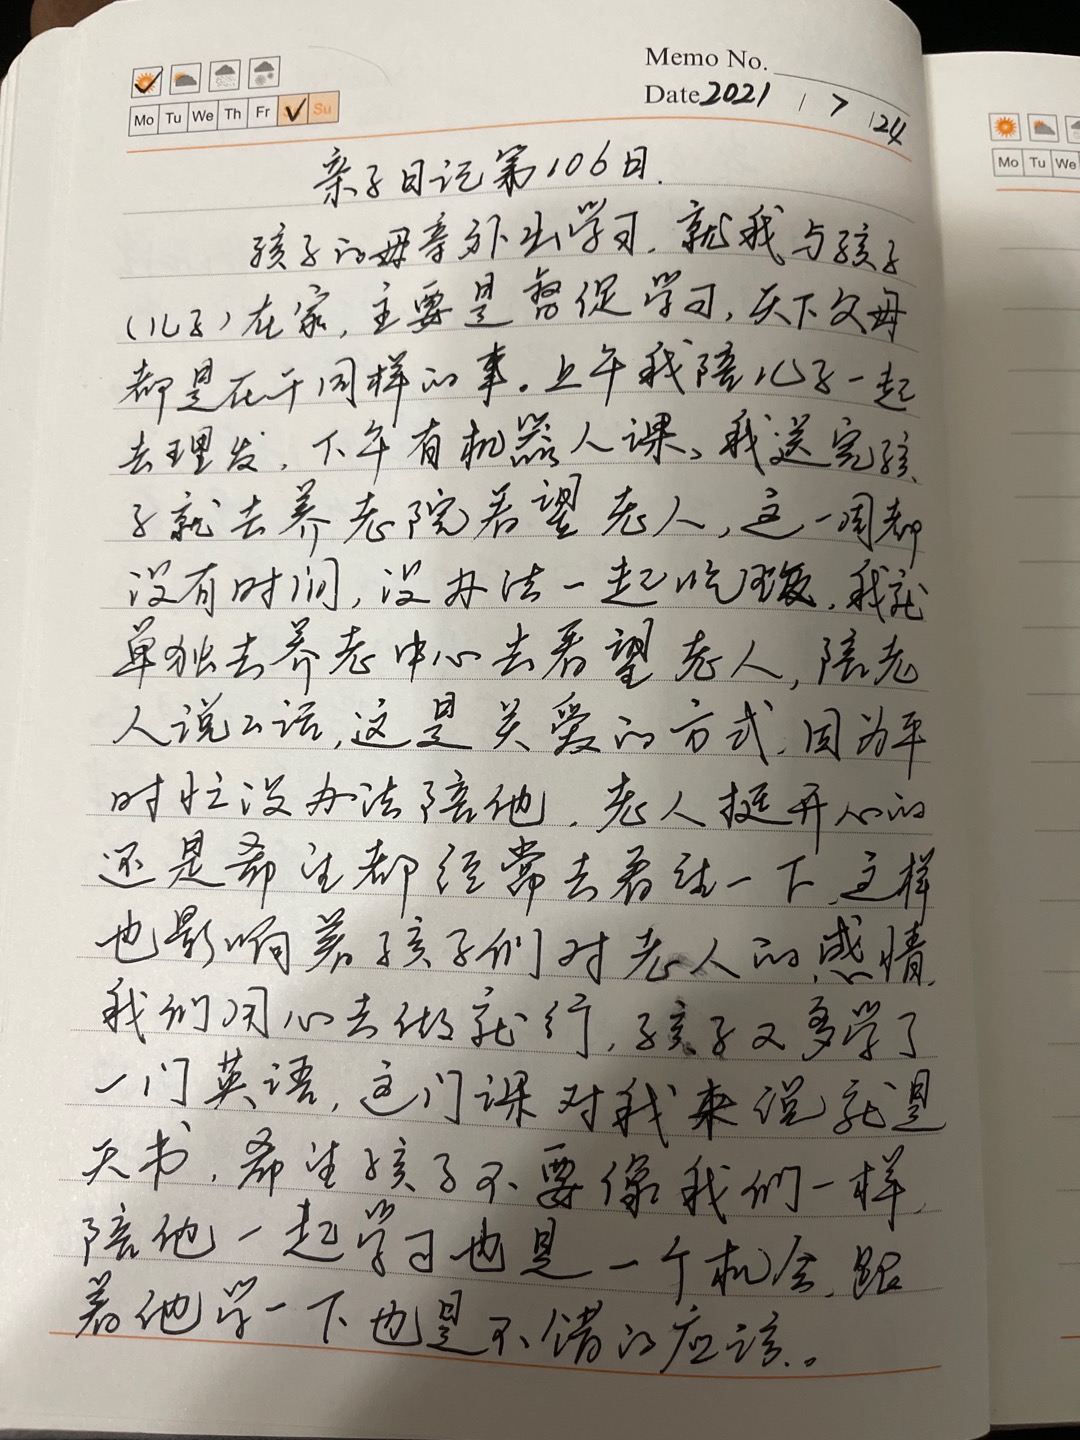 Memo No.
Mo Tu We Th Fr Su
Date 2021 / 7 / 24
Mo Tu We
亲子日记第106日.
孩子的母亲外出学习,就我与孩子
(儿子)在家,主要是督促学习,天下父母
都是在干同样的事。上午我陪儿子一起
去理发,下午有机器人课。我送完孩
子就去养老院看望老人,这一周都
没有时间,没办法一起吃饭,我就
单独去养老中心去看望老人,陪老
人说说话,这是关爱的方式,因为平
时忙没办法陪他,老人挺开心的
还是希望都经常去看望一下,这样
也影响着孩子们对老人的感情,
我们用心去做就行,孩子又多学了
一门英语,这门课对我来说就是
天书,希望孩子不要像我们一样,
陪他一起学习也是一个机会,跟
着他学一下也是不错的应该。